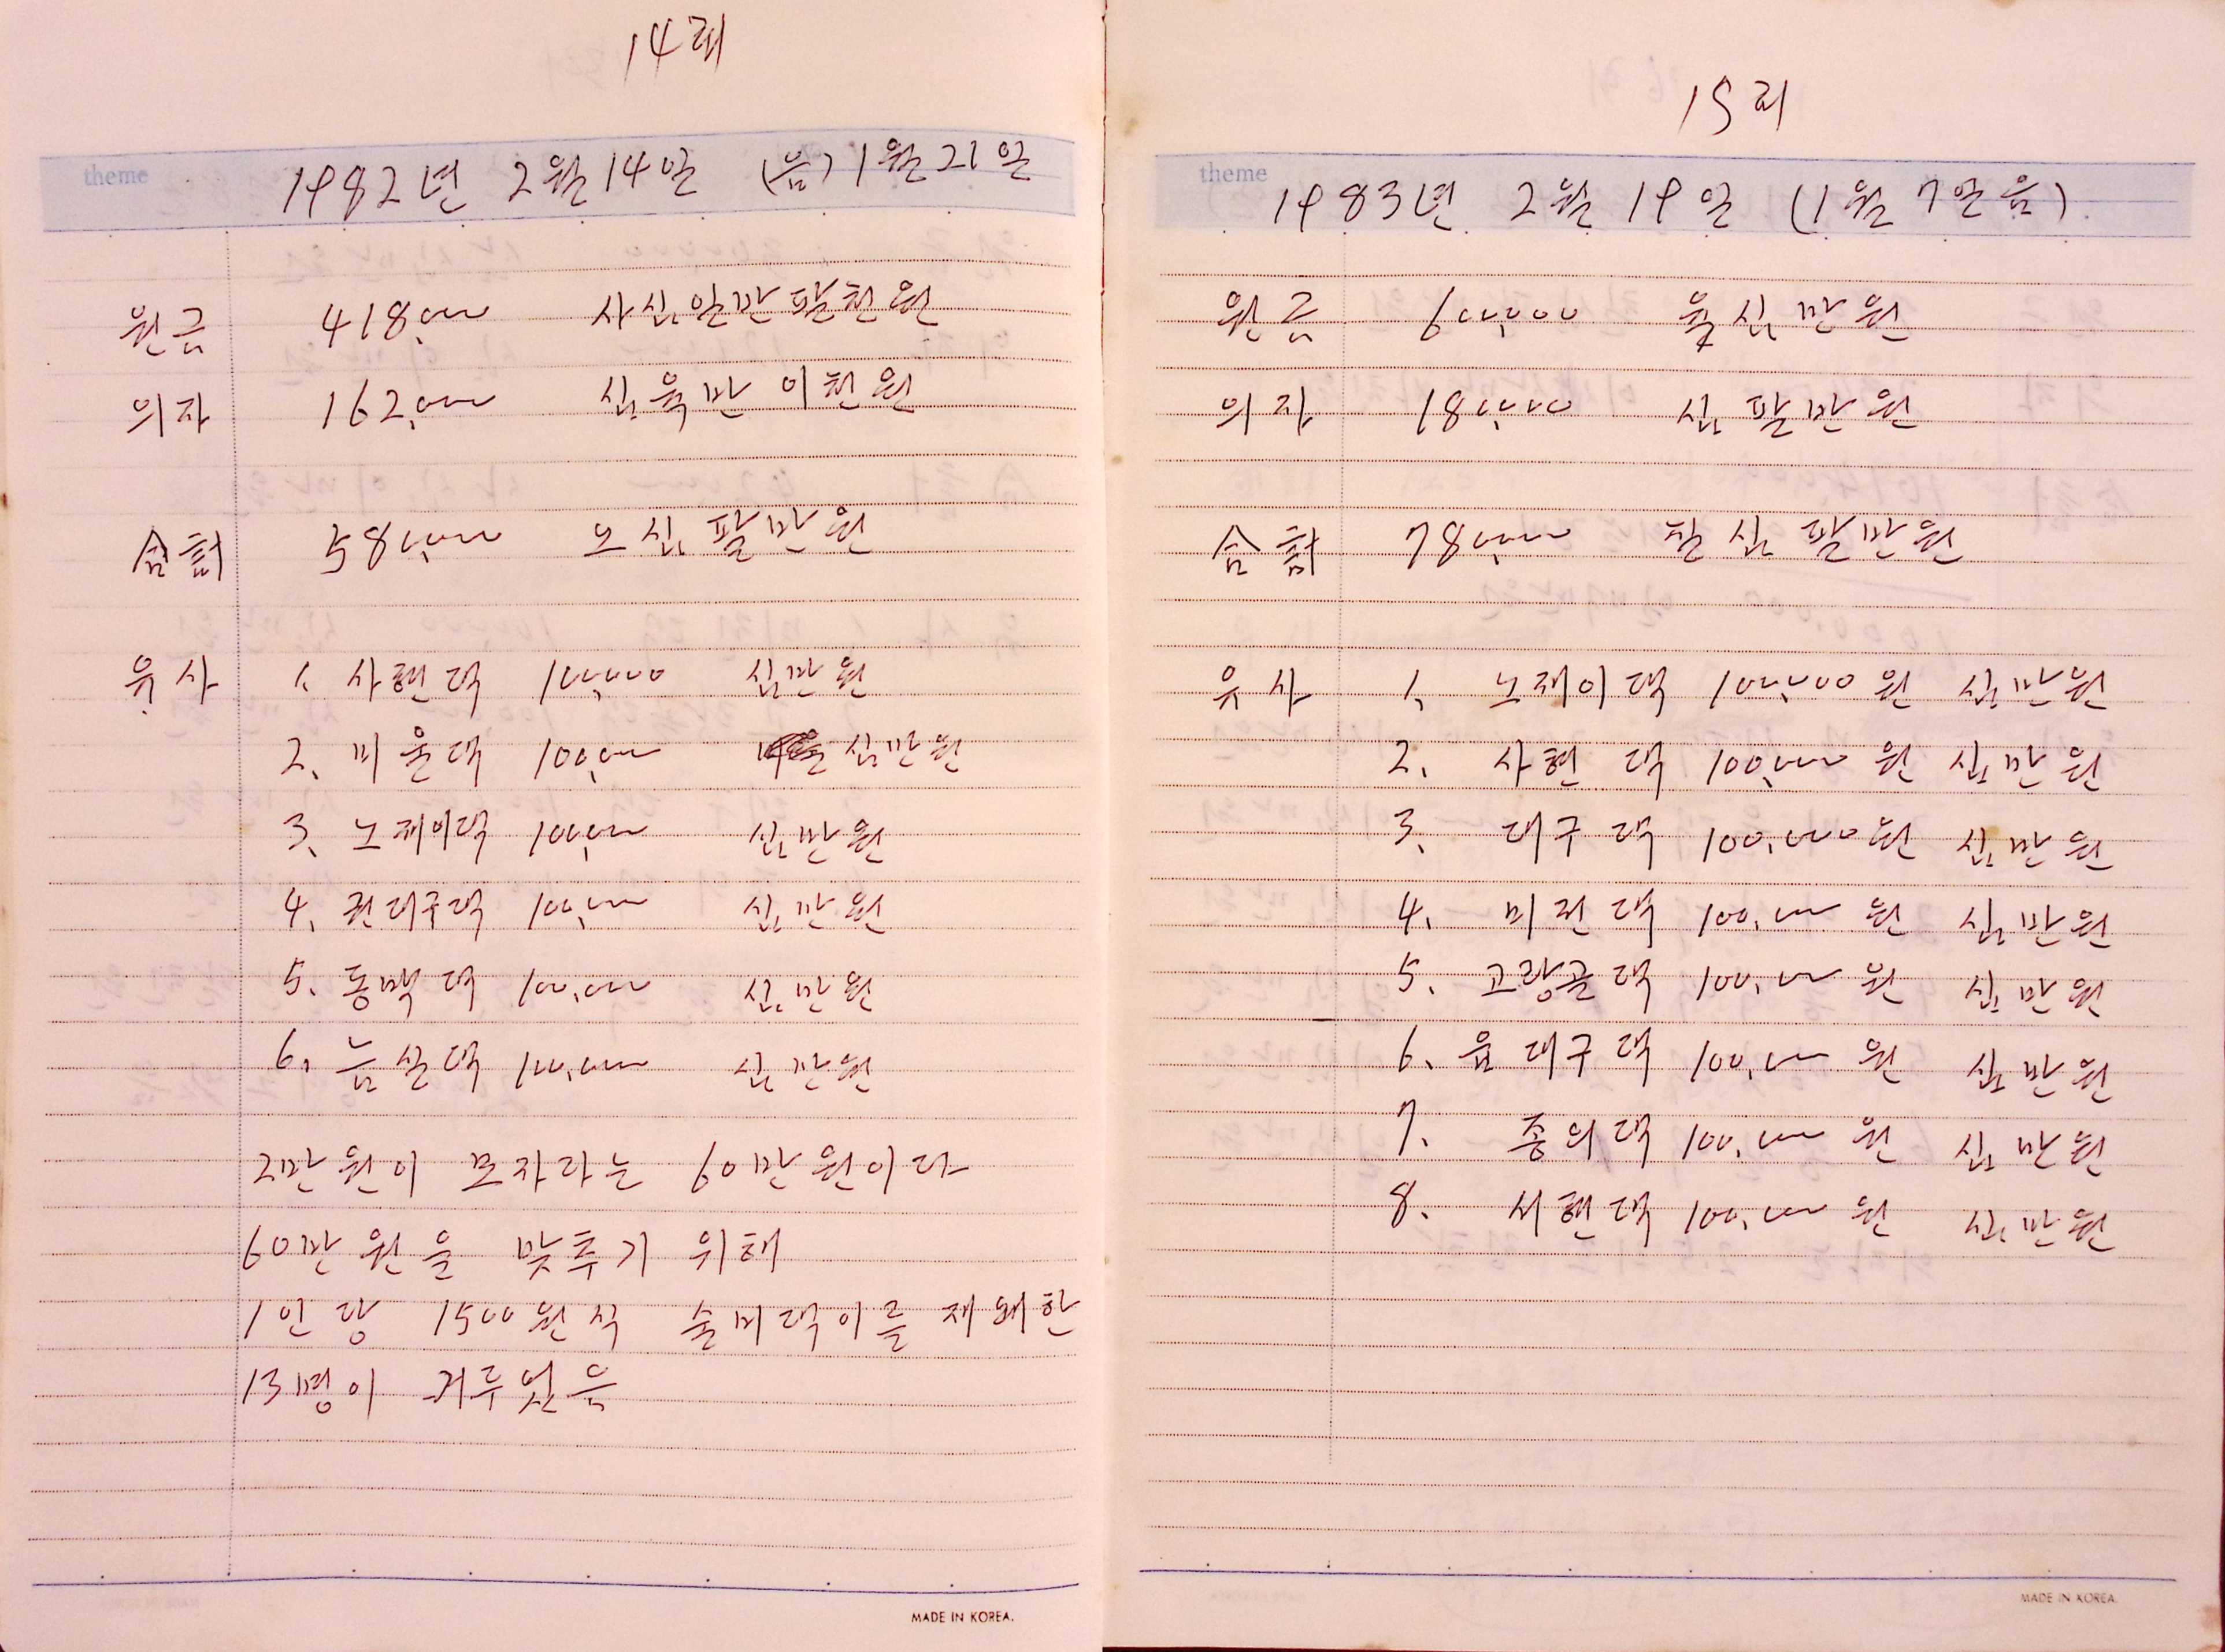 14회
theme
1982년 2월 14일 (음) 1월 21일
원금 418,000 사십일만팔천원
의자 162,000 십육만이천원
合計 580,000 오십팔만원
유사 1. 사현댁 100,000 십만원
2. 미울댁 100,000 십만원
3. 노재이댁 100,000 십만원
4. 권대구댁 100,000 십만원
5. 동맥댁 100,000 십만원
6. 늠실댁 100,000 십만원
2만원이 모자라는 60만원이다
60만원을 맞추기 위해
1인당 1500원식 술미댁이를 재왜한
13명이 거루었음
MADE IN KOREA.
15회
theme
1983년 2월 19일 (1월 7일 음)
원금 600,000 육십만원
의자 180,000 십팔만원
合計 780,000 칠십팔만원
유사 1. 노재이댁 100,000원 십만원
2. 사현댁 100,000원 십만원
3. 대구댁 100,000원 십만원
4. 미전댁 100,000원 십만원
5. 고랑골댁 100,000원 십만원
6. 윤대구댁 100,000원 십만원
7. 종의댁 100,000원 십만원
8. 서현댁 100,000원 십만원
MADE IN KOREA.